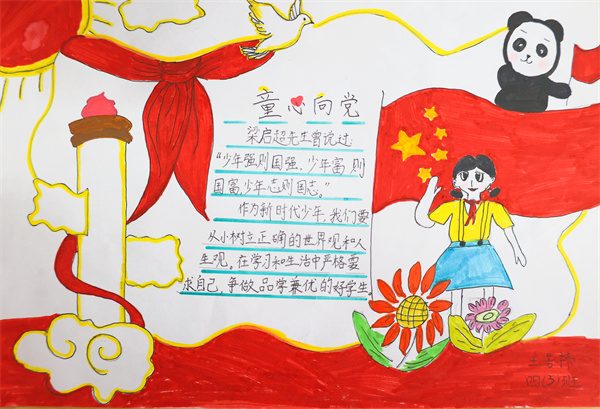 童心向党
梁启超先生曾说过
“少年强则国强,少年富则
国富,少年志则国志。”
作为新时代少年,我们要
从小树立正确的世界观和人
生观。在学习和生活中严格要
求自己,争做品学兼优的好学生
四(3)班